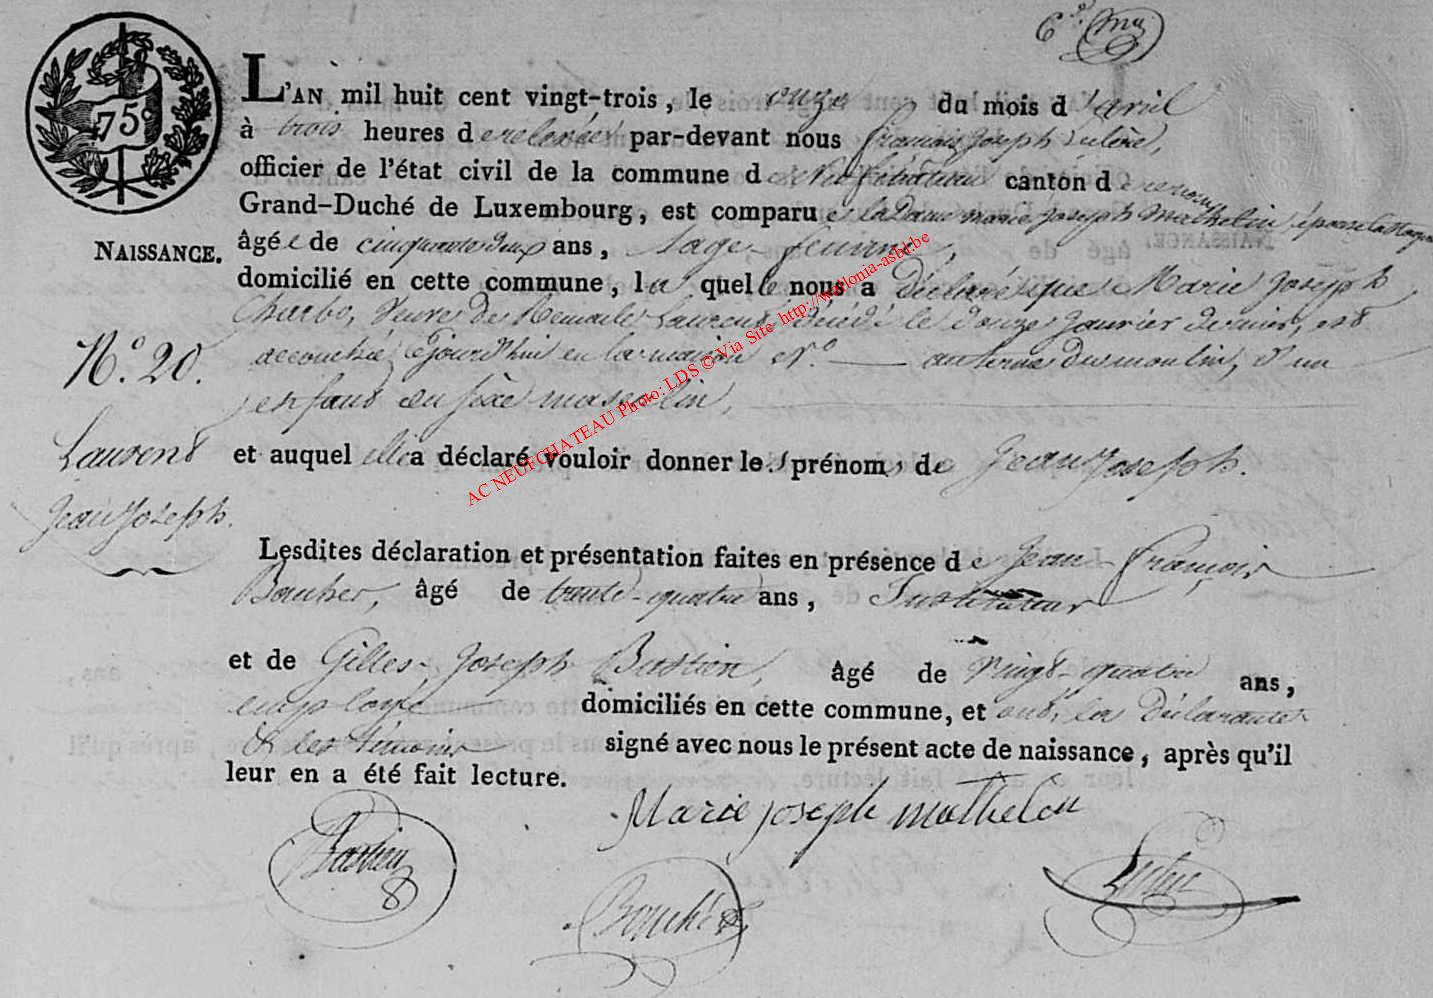 75c
L'AN mil huit cent vingt-trois, le onze du mois d'avril
à trois heures de relevée par-devant nous François Joseph
officier de l'état civil de la commune de Neufchâteau canton de
Grand-Duché de Luxembourg, est comparue la Dame marie joseph Mathelin épouse
NAISSANCE.
âgée de cinquante deux ans, Sage-femme,
domicilié en cette commune, laquelle nous a déclaré que Marie Joseph
Charbo, Veuve de Remacle Laurent, décédé le douze Janvier dernier, est
N.° 20.
accouchée ce jourd'hui en la maison N.° — du moulin, d'un
enfant du sexe masculin,
Laurent
Jean Joseph.
et auquel elle a déclaré vouloir donner les prénoms de Jean Joseph.
Lesdites déclaration et présentation faites en présence de Jean François
âgé de trente-quatre ans, Instituteur
et de Gilles-Joseph Bastien, âgé de vingt-quatre ans,
employé domiciliés en cette commune, et ont, la Déclarante
& les témoins signé avec nous le présent acte de naissance, après qu'il
leur en a été fait lecture.
Marie joseph mathelin
Bastien
AC NEUFCHATEAU Photo: LDS © Via Site http://wallonia-asbl.be